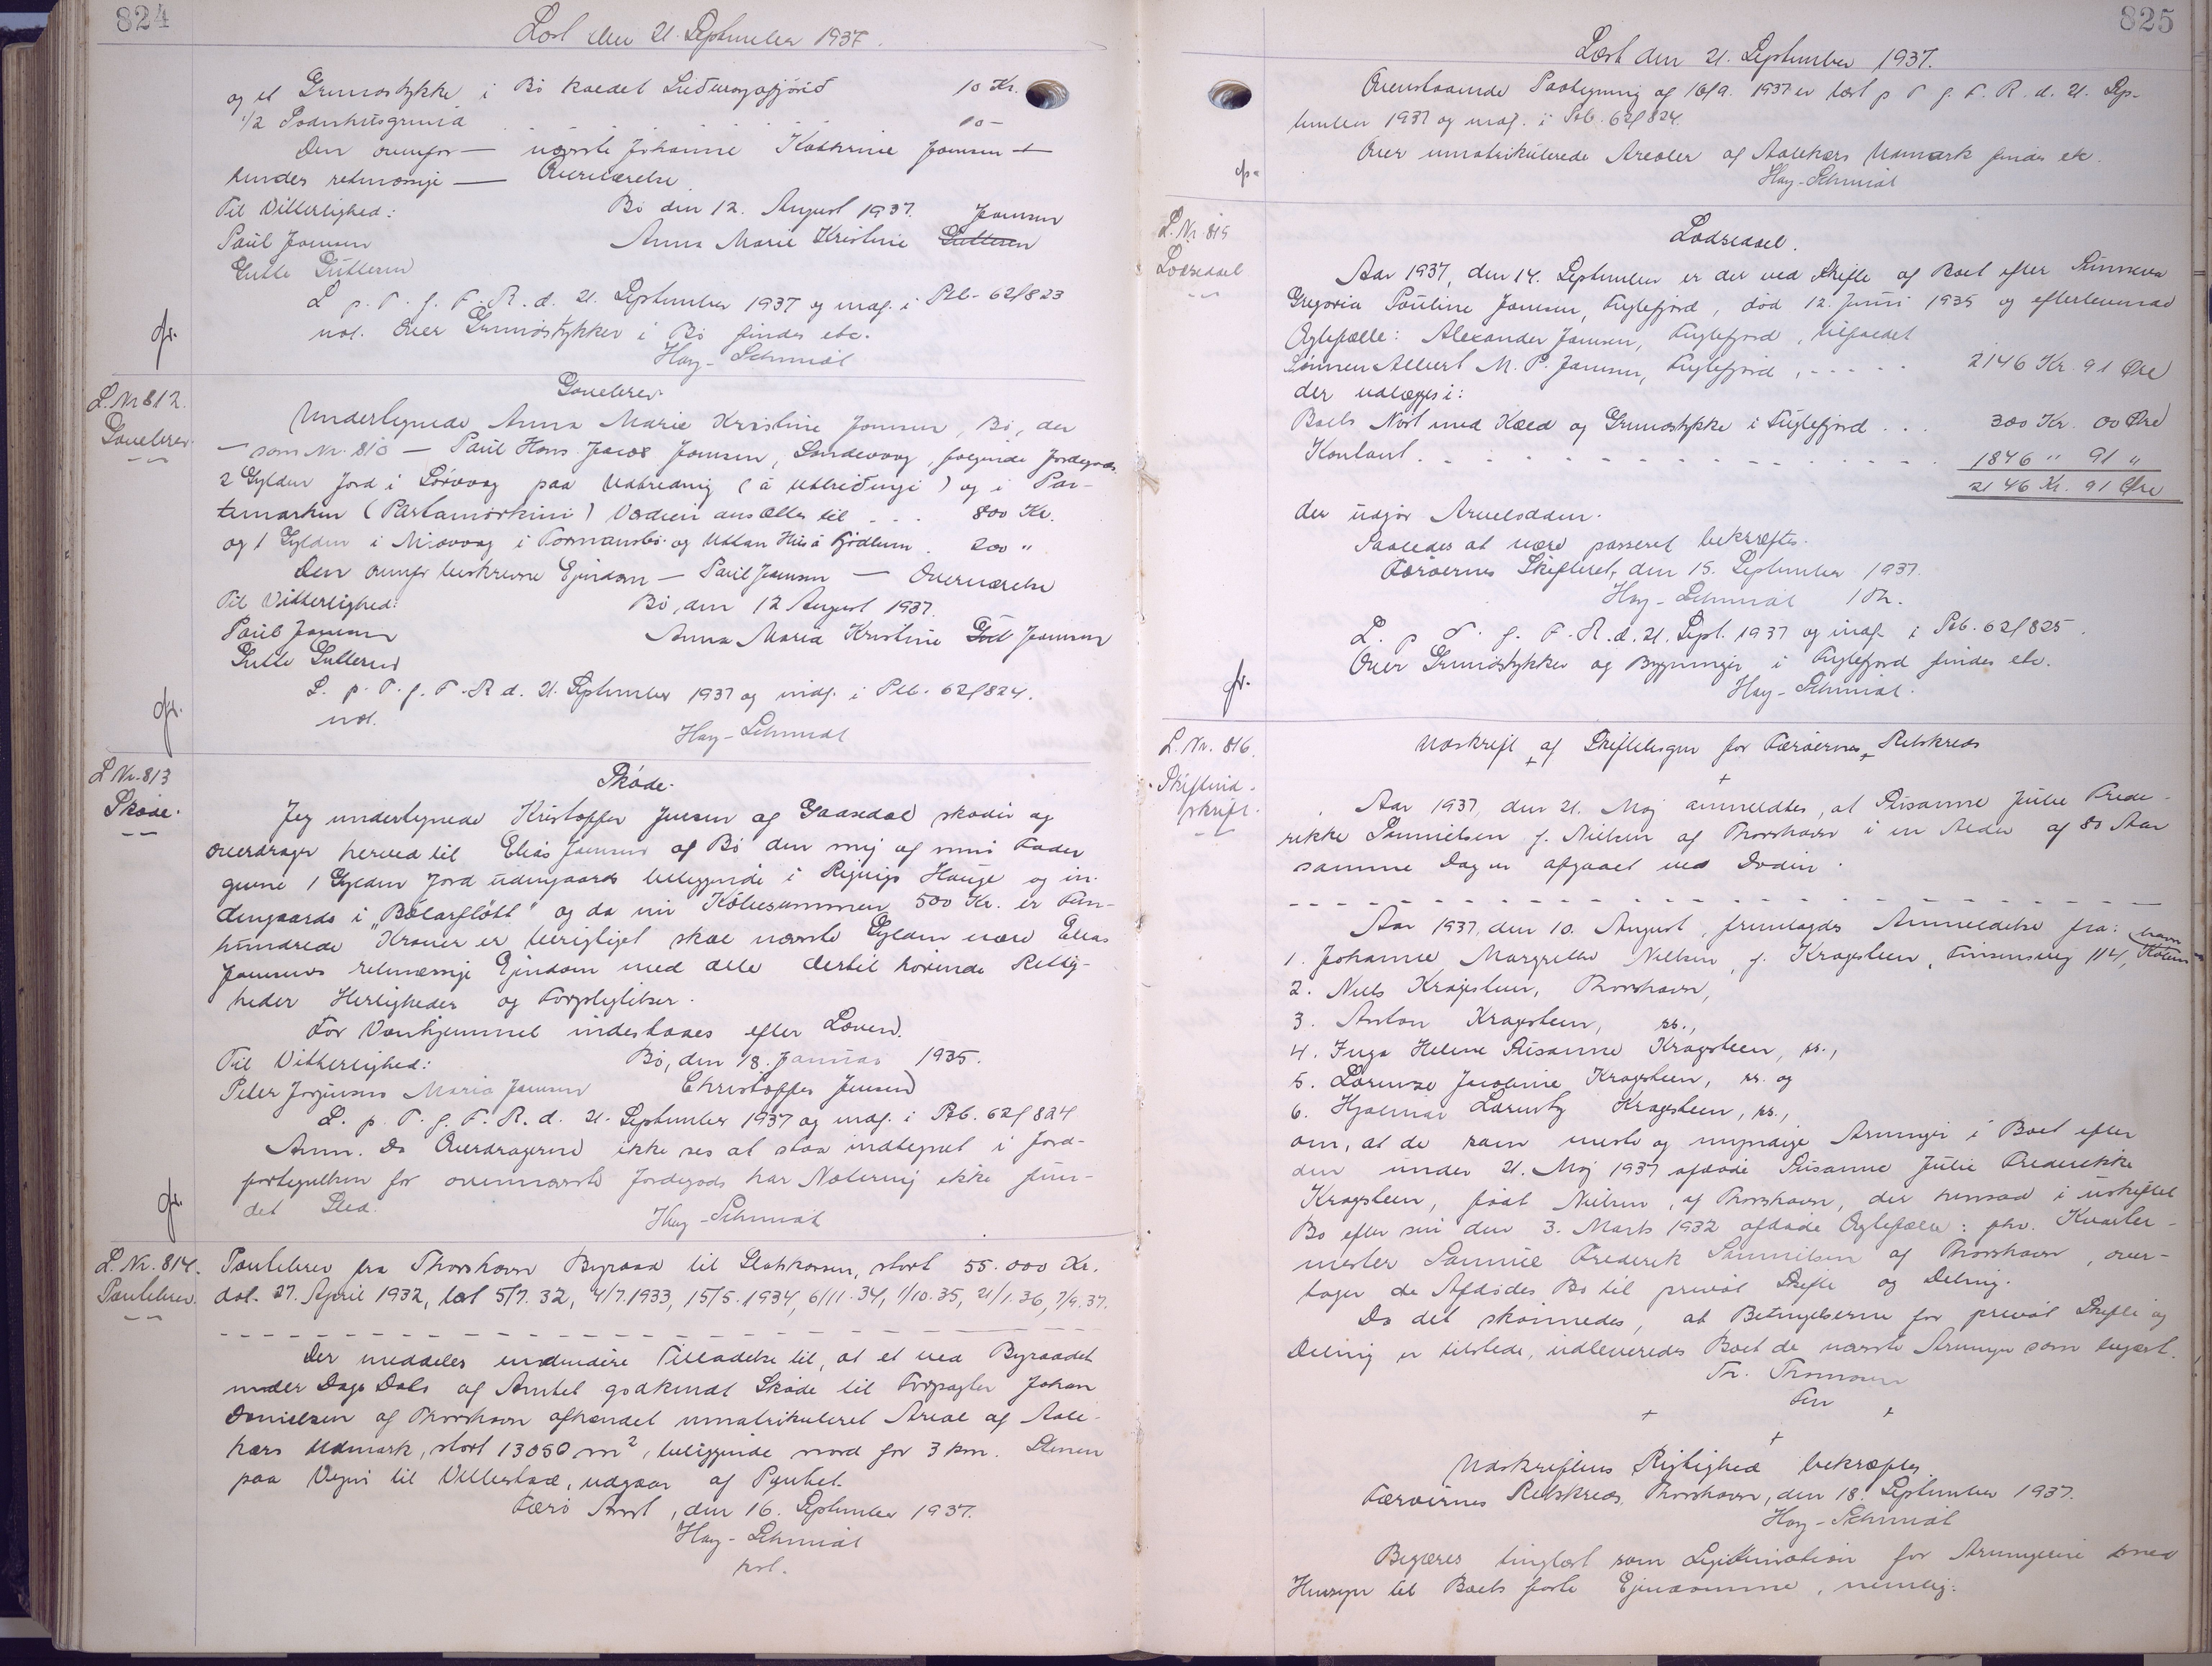 824
Læst den 21. September 1937.
og et Grundstykke i Bø kaldet 10 Kr.
1/2 10 -
Den ovenfor — nævnte Johanne Kathrine Joensen +
kendes retmæssige — Overværelse.
Til Vitterlighed: Bø den 12. August 1937. Joensen
Paul Joensen Anna Marie Kristine
Gutte Guttesen
L. p. T. f. F. R. d. 21. September 1937 og indf. i Ptb. 62f823
not. Over Grundstykker i Bø findes etc.
Hay-Schmidt
L. Nr 812.
Gavebrev
Gavebrev.
Undertegnede Anna Marie Kristine Joensen, Bø, der
— som Nr. 810 — Paul Hans Jacob Joensen, Sandevaag, følgende Jordegods
2 Gylden Jord i Sørvaag paa Udbredning (á Útbreiðingi) og i Par-
temarken (Partamørkini) Værdien ansættes til - - - 800 Kr.
og 1 Gylden i Midvaag i og Uttan Hús á 200 "
Den ovenfor beskrevne Ejendom — Paul Joensen — Overværelse
Til Vitterlighed: Bø, den 12 August 1937.
Paul Joensen Anna Maria Kristine Joensen
Gutte Guttesen
L. p. T. f. F. R d. 21. September 1937 og indf. i Ptb. 62f824.
not. Hay-Schmidt
L Nr. 813
Skøde.
Skøde.
Jeg undertegnede Kristoffer Jensen af Gaasedal skøder og
overdrager herved til Elias Joensen af Bø den mig af min Fader
givne 1 Gylden Jord udengaards beliggende i Hauge og in-
dengaards i og da min Købesummen 500 Kr. er Fem-
hundrede Kroner er berigtiget skal nævnte Gylden være Elias
Joensens retmæssige Ejendom med alle dertil hørende Rettig-
heder Herligheder og Forpligtelser.
For Vanhjemmel indestaaes efter Loven.
Til Vitterlighed: Bø, den 18. Januar 1935.
Peter Jørgensen Maria Joensen Christoffer Jensen
L. p. T. f. F. R. d. 21. September 1937 og indf. i Ptb. 62f 824
Anm. Da Overdrageren ikke ses at staa indtegnet i Jord-
fortegnelsen for ovennævnte Jordegods har Notering ikke fun-
det Sted.
Hay-Schmidt
L. Nr. 814.
Pantebrev.
Pantebrev fra Thorshavn Byraad til Statskassen, stort 55.000 Kr.
dat. 27. April 1932, læst 5/7. 32, 4/7.1933, 15/5.1934, 6/11.34, 1/10.35, 21/1.36, 7/9.37.
Der meddeles endvidere Tilladelse til, at et ved Byraadet
under Dags Dato af Amtet godkendt Skøde til Forpagter Johan
Danielsen af Thorshavn afhændet umatrikuleret Areal af Aale-
kærs Udmark, stort 13050 m², beliggende nord for 3 km. Stenen
paa Vejen til Velbestad, udgaar af Pantet.
Færø Amt, den 16. September 1937.
Hay-Schmidt
kst.
825
Læst den 21. September 1937.
Ovenstaaende Paategning af 16/9. 1937 er læst p T. f. F. R. d. 21. Sep-
tember 1937 og indf. i Ptb. 62f824.
Over umatrikulerede Arealer af Aalekærs Udmark findes etc.
Hay-Schmidt
L. Nr. 815
Lodseddel
Lodseddel.
Aar 1937, den 14. September er der ved Skifte af Boet efter Sunneva
Gregoria Pouline Joensen, Fuglefjord, død 12. Juni 1935 og efterlevende
Ægtefælle: Alexander Joensen, Fuglefjord, tilfaldet
Sønnen Albert M. P. Joensen, Fuglefjord, - - - - - 2146 Kr. 91 Øre
der udlægges i:
Boets Nøst med Kæld og Grundstykke i Fuglefjord . . . 300 Kr. 00 Øre
Kontant. - - - - - - - - - - 1846 " 91 "
2146 Kr. 91 Øre
der udgør Arvelodden.
Saaledes at være passeret bekræftes.
Færøernes Skifteret, den 15. September 1937.
Hay-Schmidt
L. p T. f. F. R. d. 21. Sept. 1937 og indf. i Ptb. 62f825.
Over Grundstykker og Bygninger i Fuglefjord findes etc.
Hay-Schmidt.
L. Nr. 816.
Skifteud-
skrift.
Udskrift af Skiftebogen for Færøernes Retskreds
Aar 1937, den 21. Maj anmeldtes, at Susanne Julie Frede-
rikke Samuelsen f. Nielsen af Thorshavn i en Alder af 80 Aar
samme Dag er afgaaet ved Døden.
Aar 1937, den 10. August, fremlagdes Anmeldelse fra:
1. Johanne Margrethe Nielsen, f. Kragesteen, Finsensvej 114, København
2. Niels Kragesteen, Thorshavn,
3. Anton Kragesteen, ss.,
4. Inga Helene Susanne Kragesteen, ss.,
5. Jacobine Kragesteen, ss. og
6. Hjalmar Kragesteen, ss.,
om, at de som eneste og myndige Arvinger i Boet efter
den under 21. Maj 1937 afdøde Susanne Julie Frederikke
Kragesteen, født Nielsen, af Thorshavn, der hensad i uskiftet
Bo efter sin den 3. Marts 1932 afdøde Ægtefælle: fhv. Kvarter-
mester Samuel Frederik Samuelsen af Thorshavn, over-
tager de Afdødes Bo til privat Skifte og Deling.
Da det skønnedes, at Betingelserne for privat Skifte og
Deling er tilstede, udleveredes Boet de nævnte Arvinger som begært.
Th. Thomsen
Fm
Udskriftens Rigtighed bekræftes.
Færøernes Retskreds, Thorshavn, den 18. September 1937.
Hay-Schmidt
Begæres tinglæst som Legitimation for Arvingerne med
Hensyn til Boets faste Ejendomme, nemlig: